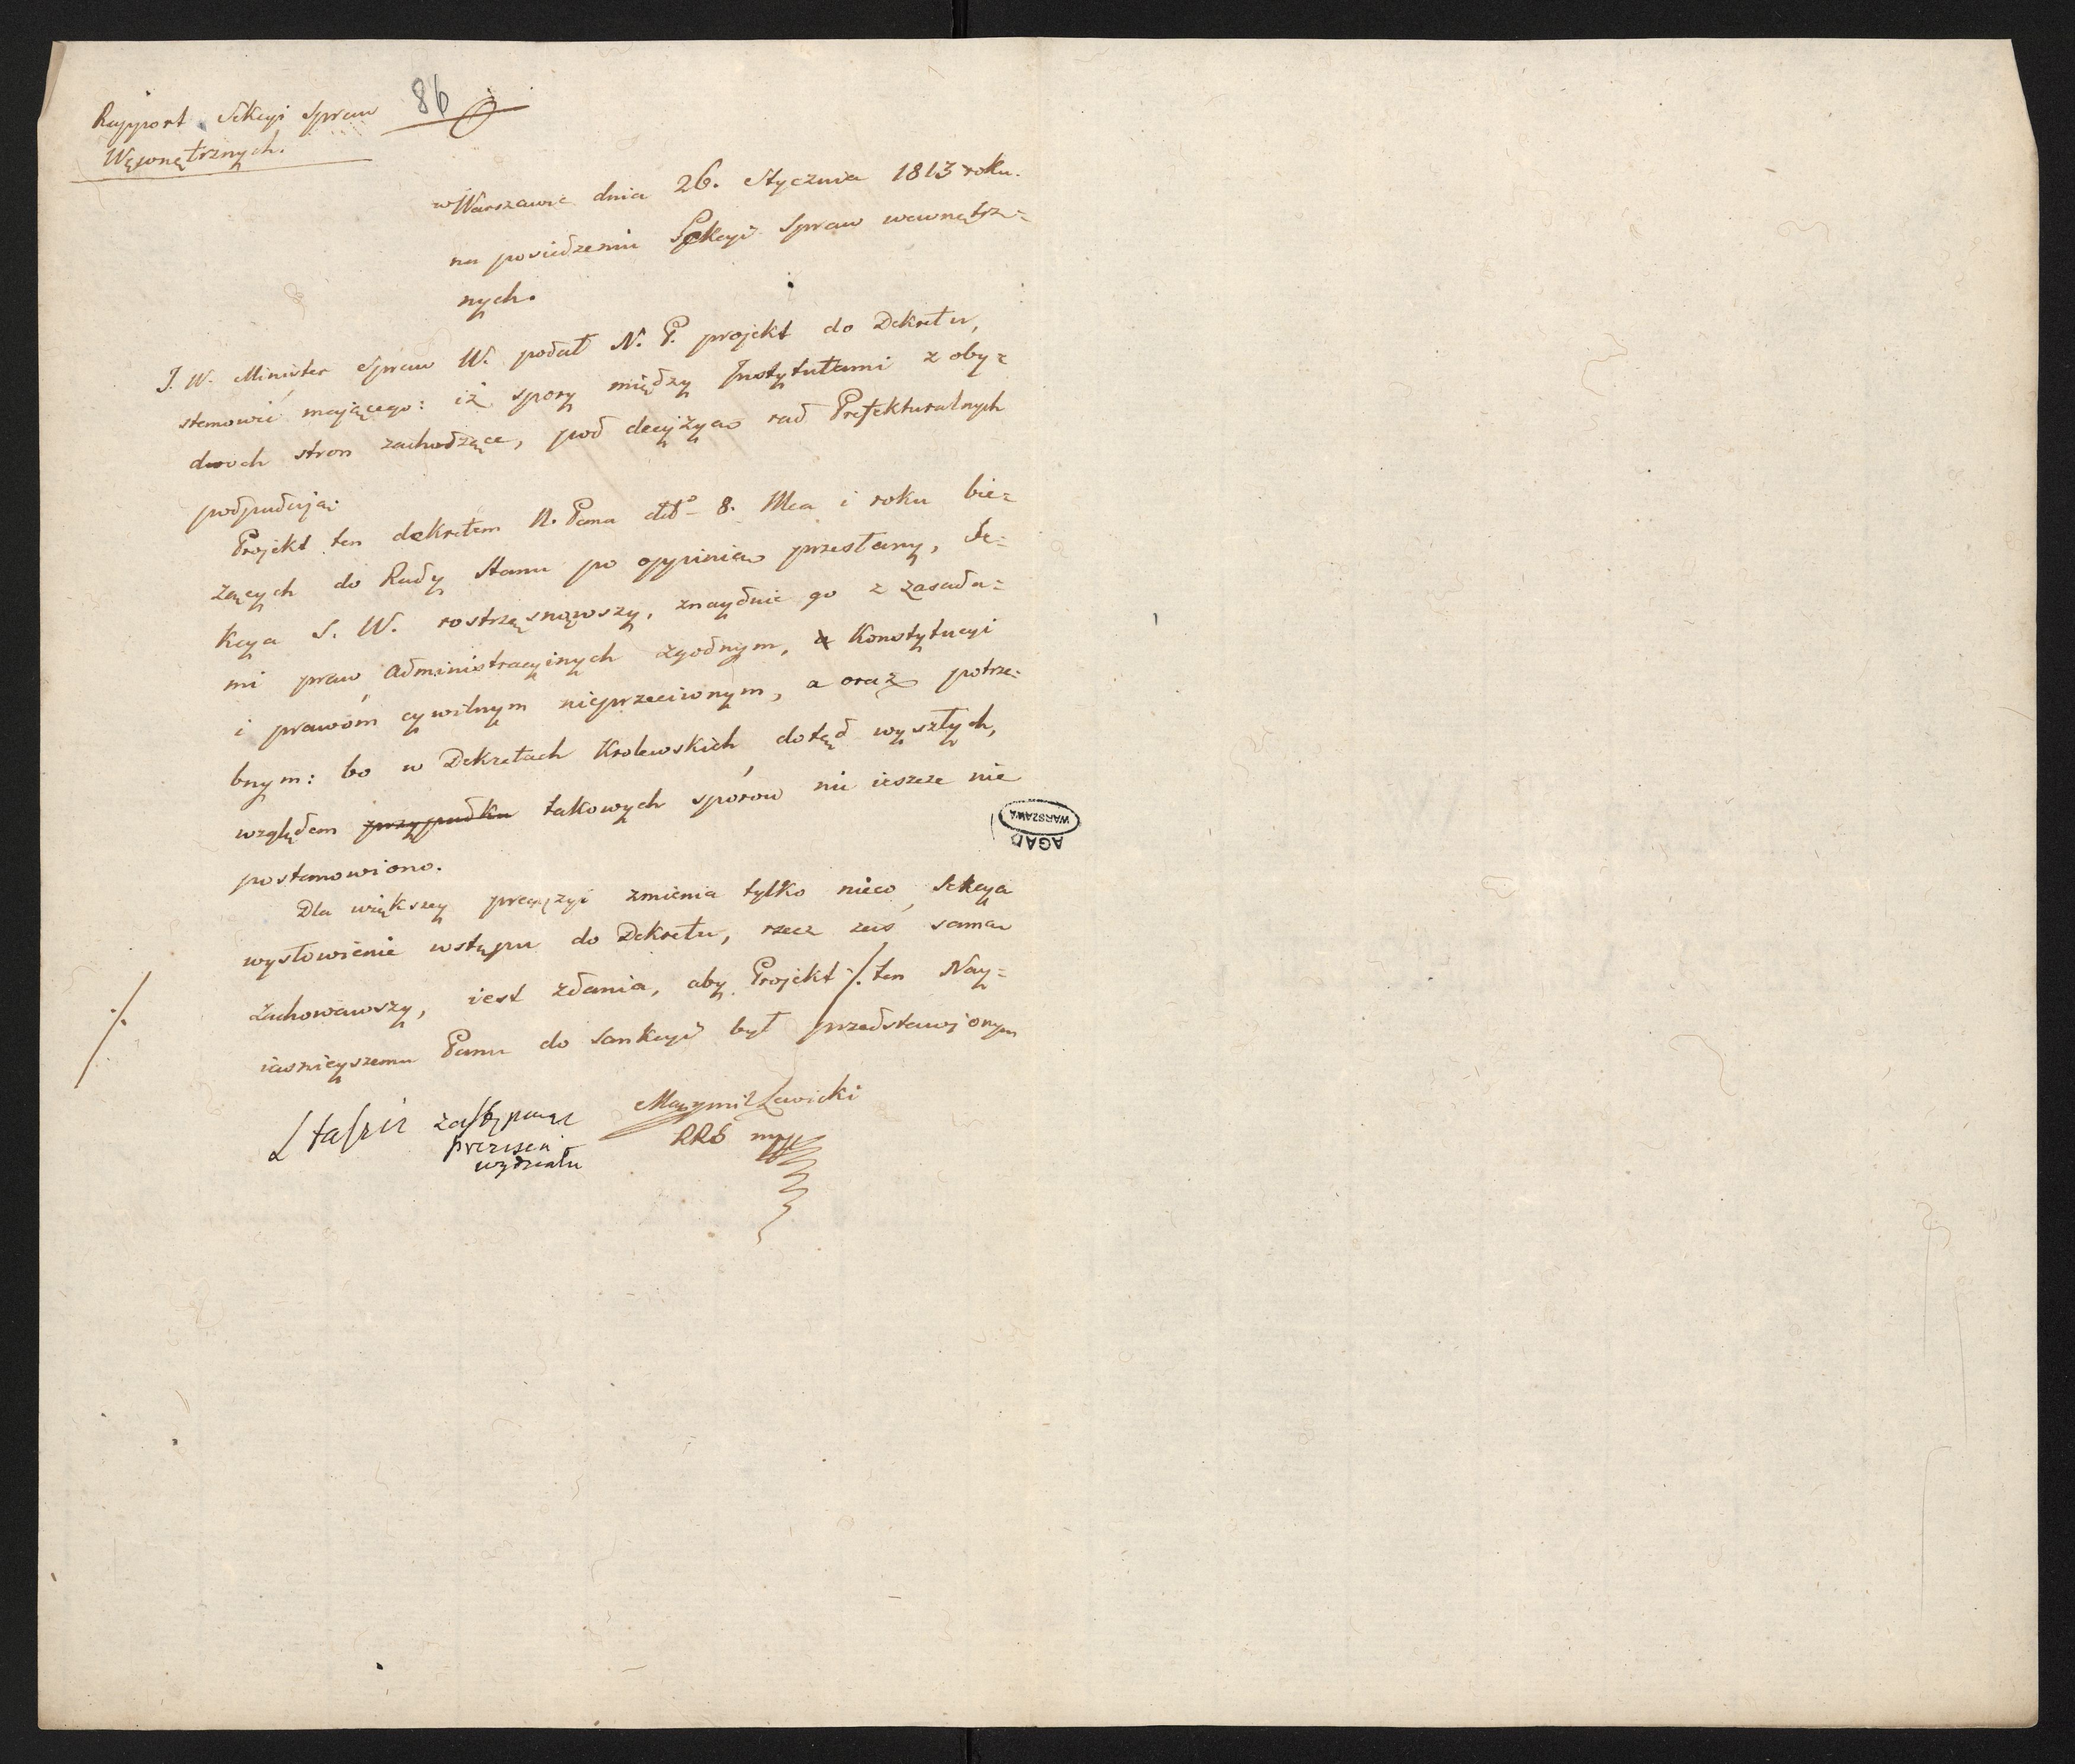 86
Rapport Sekcyi Spraw
Wewnętrznych.
w Warszawie dnia 26. Stycznia 1813 roku.
na posiedzeniu Sekcyi Spraw wewnętrz=
nych.
J. W. Minister Spraw W. podał N. P. projekt do Dekretu,
stanowić mającego: iż spory między Instytutami z oby=
dwoch stron zachodzące, pod decyzyą rad Prefekturalnych
podpadaią:
Projekt ten dekretem N. Pana dtto 8. Mca i roku bie=
żących do Rady Stanu po oppinią przesłany, Se=
kcya S. W. rostrząsnąwszy, znayduie go z zasada=
mi praw Administracyinych zgodnym, a Konstytucyi
i prawom cywilnym nieprzeciwnym, a oraz potrze=
bnym: bo w Dekretach Krolewskich dotąd wyszłych,
względem przypadku takowych sporow nic ieszcze nie
postanowiono.
Dla większey precyzyi zmienia tylko nieco Sekcya
wysłowienie wstępu do Dekretu, rzecz zaś sama
zachowawszy, iest zdania, aby Projekt ./. ten Nay=
iasnieyszemu Panu do Sankcyi był przedstawionym
./.
Staszic zastępuiąc
prezesa
wydziału
Maxymil Lawicki
RRS mp
AGAD
WARSZAWA